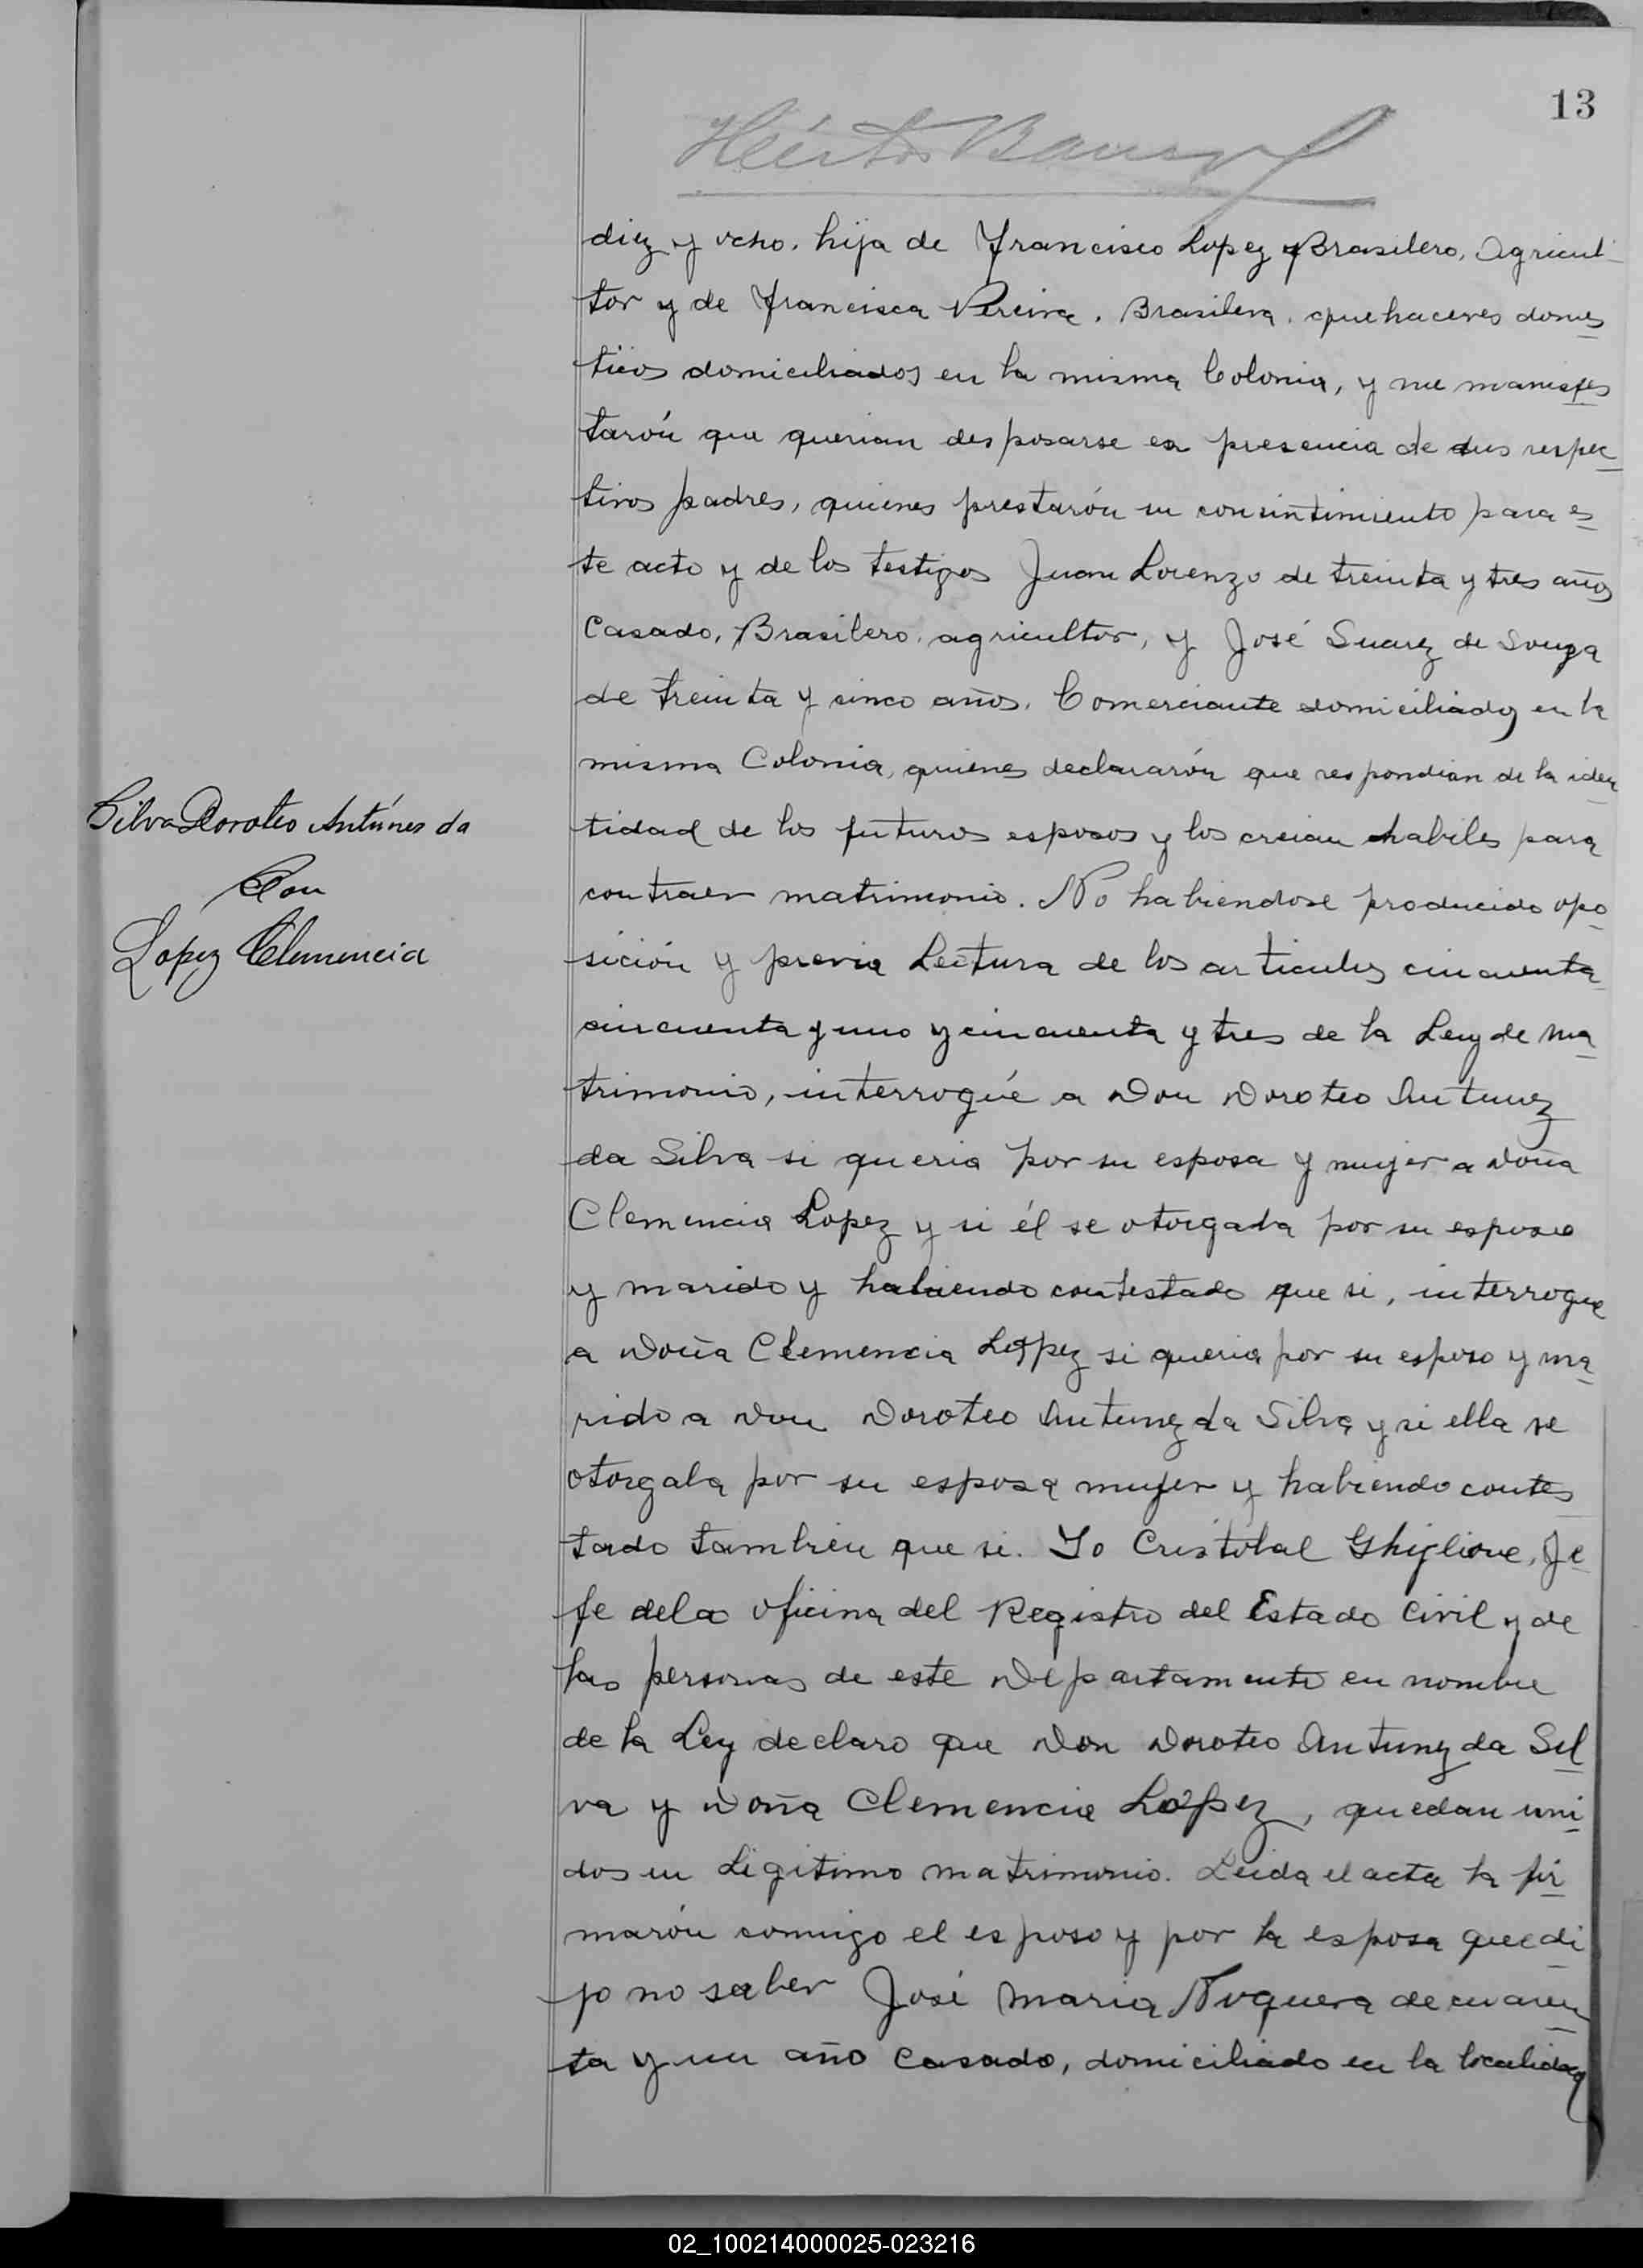 13
Héctor
diez y ocho. hija de Francisco Lopez Brasilero, Agricul
tor y de Francisca Pereira. Brasilera. quehaceres domes
ticos domiciliados en la misma Colonia, y me manifes
tarón que querian desposarse en presencia de sus respec
tivos padres, quienes prestarón su consintimiento para es
te acto y de los testigos Juan Lorenzo de treinta y tres años
Casado, Brasilero, agricultor, y José Suarez de Souza
de treinta y cinco años. Comerciante domiciliados en la
misma Colonia, quienes declararón que respondian de la iden
Silva Doroteo Antúnes da
tidad de los futuros esposos y los creian habiles para
Con
contraer matrimonio. No habiendose producido opo
Lopez Clemencia
sición y previa Lectura de los articulos cincuenta
cincuenta y uno y cincuenta y tres de la Ley de ma
trimonio, interrogué a Don Doroteo Antunez
da Silva si queria por su esposa y mujer a Doña
Clemencia Lopez y si él se otorgaba por su esposo
y marido y habiendo contestado que si, interrogue
a Doña Clemencia Lopez si queria por su esposo y ma
rido a Don Doroteo Antunez da Silva y si ella se
otorgaba por su esposa mujer y habiendo contes
tado tambien que si. Yo Cristobal Ghiglione, Je
fe dela oficina del Registro del Estado Civil y de
las personas de este Departamento en nombre
de la Ley declaro que Don Doroteo Antunez da Sil
va y Doña Clemencia Lopez, quedan uni
dos en Legitimo matrimonio. Leida el acta la fir
marón comigo el esposo y por la esposa que di
jo no saber José Maria Noguera de cuaren
ta y un año Casado, domiciliado en la localidad
02_100214000025-023216